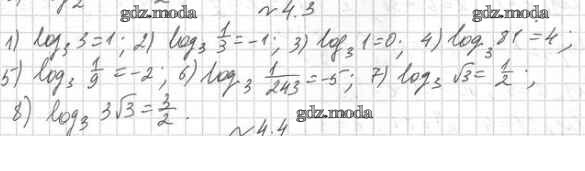 gdz.moda
№4.3
1) log₃ 3=1; 2) log₃ 1/3=-1; 3) log₃ 1=0; 4) log₃ 81=4;
5) log₃ 1/9=-2; 6) log₃ 1/243=-5; 7) log₃ √3=1/2;
8) log₃ 3√3=3/2.
gdz.moda
№4.4